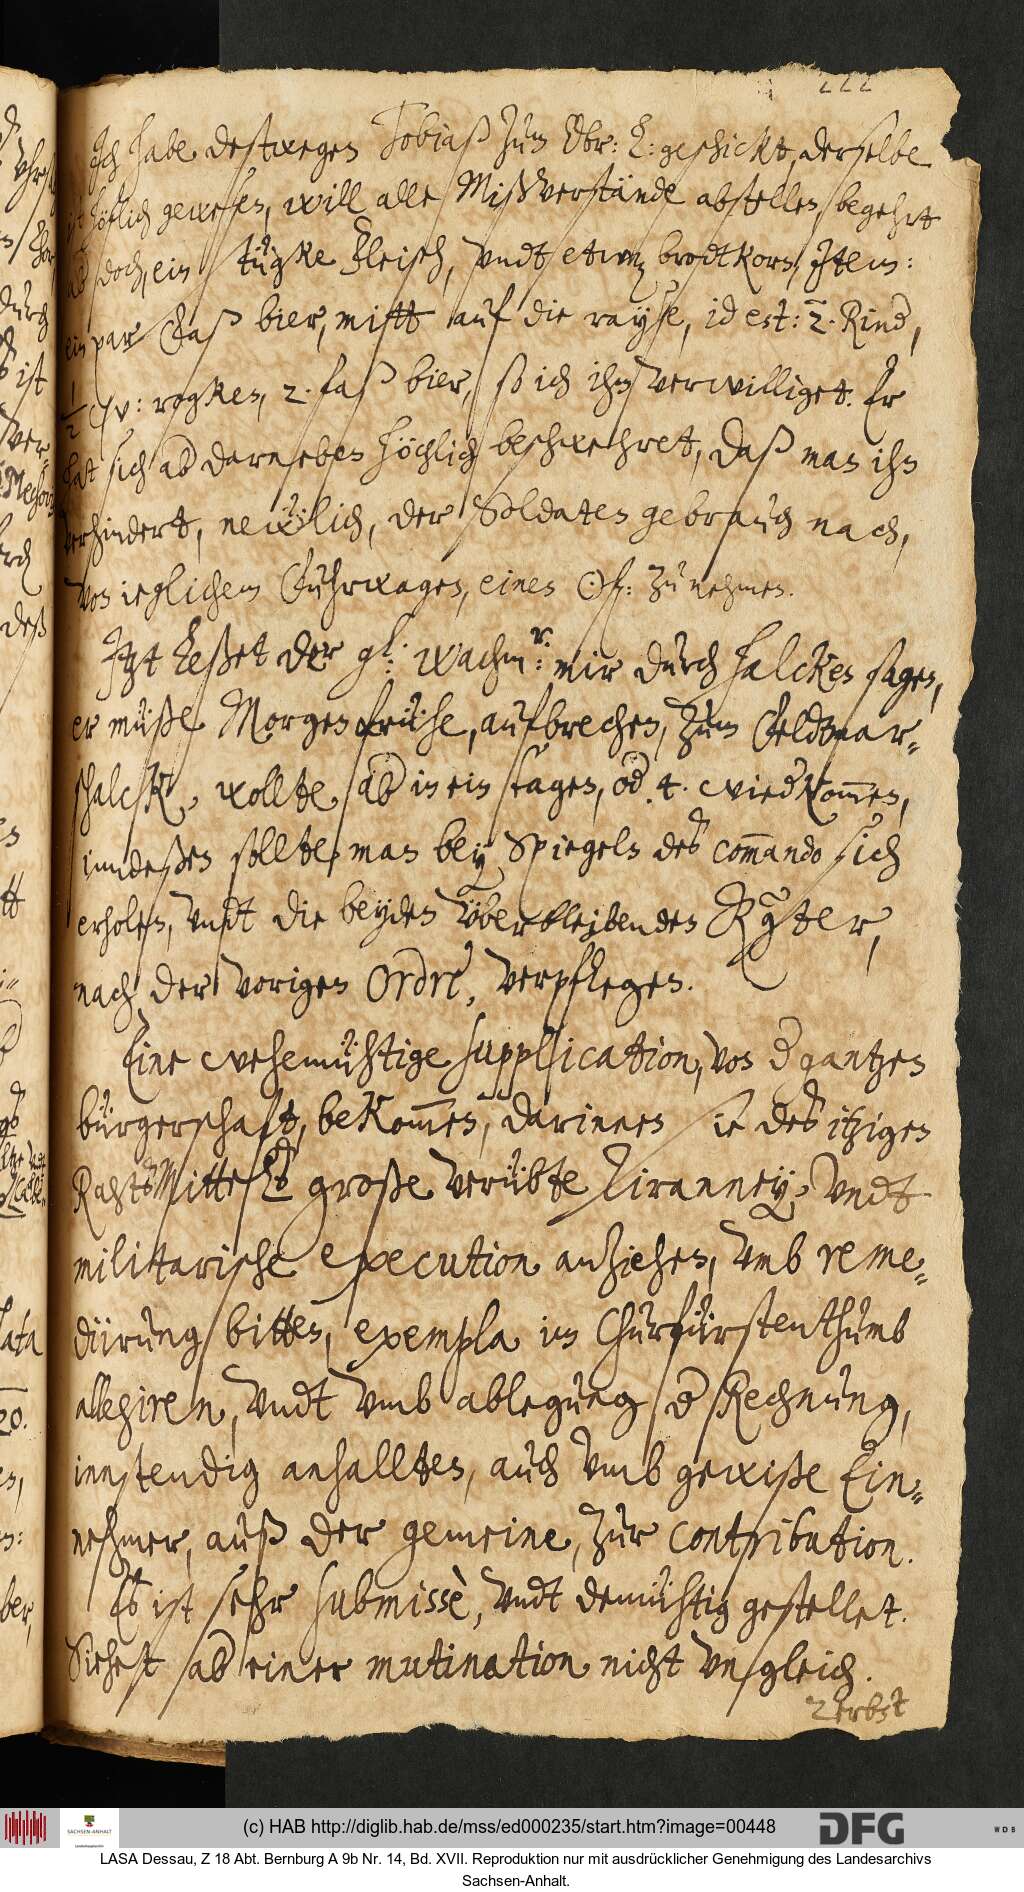 222
Ich habe destwegen Tobiaß zum Obr: L: geschickt, derselbe
ist höflich gewesen, will alle Mißverstände abstellen, begehrt
ab doch, ein stügke fleisch, undt etwas brodtkorn, Item:
ein par Faß bier, mitt auf die rayse, id est: 2. Rind,
1/2 W: rogken, 2. faß bier, so ich ihm verwilliget. Er
hat sich ab darneben höchlich beschwehret, daß man ihn
verhindert, newlich, der Soldaten gebrauch nach,
von ieglichem Fuhrwagen, einen zu nehmen.
Itzt leßet der wachmr: mir durch Halcken sagen,
er müße Morgen früihe, aufbrechen, zum Feldtmar-
schalck, wollte ab in ein tagen, od 4. wiedkommen,
inndeßen sollte man bey Spiegeln des commando sich
erholen, undt die beyden überbleibenden Räyter,
nach der vorigen Ordre, verpflegen.
Eine wehemühtige supplication, von d gantzen
bürgerschaft, bekommen, darinnen sie des itzigen
Rahts Mittels große verübte Tiranney, undt
militarische execution anziehen, umb reme-
diirung bitten, exempla im Churfürstenthumb
allegiren, undt umb ablegung d Rechnung,
innstendig anhallten, auch umb gewiße Ein-
nehmer, auß der gemeine, zur contribution.
Es ist sehr submissè, undt demühtig gestellet.
Siehet ab einer mutination nicht ungleich.
Zerbst
(c) HAB http://diglib.hab.de/mss/ed000235/start.htm?image=00448
SACHSEN-ANHALT
DFG
WDB
LASA Dessau, Z 18 Abt. Bernburg A 9b Nr. 14, Bd. XVII. Reproduktion nur mit ausdrücklicher Genehmigung des Landesarchivs
Sachsen-Anhalt.